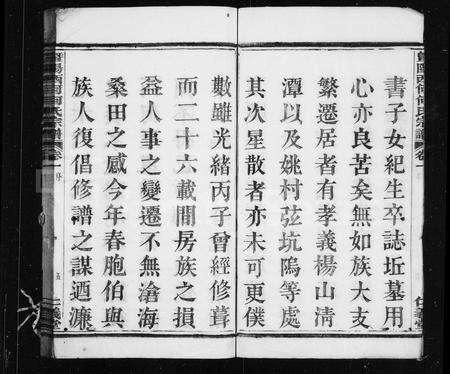 書子女紀生卒誌坵墓用
心亦良苦矣無如族大支
繁遷居者有孝義楊山清
潭以及姚村弦坑塢等處
其次星散者亦未可更僕
數雖光緒丙子曾經修葺
而二十六載閒房族之損
益人事之變遷不無滄海
桑田之感今年春胞伯與
族人復倡修譜之謀迺濂